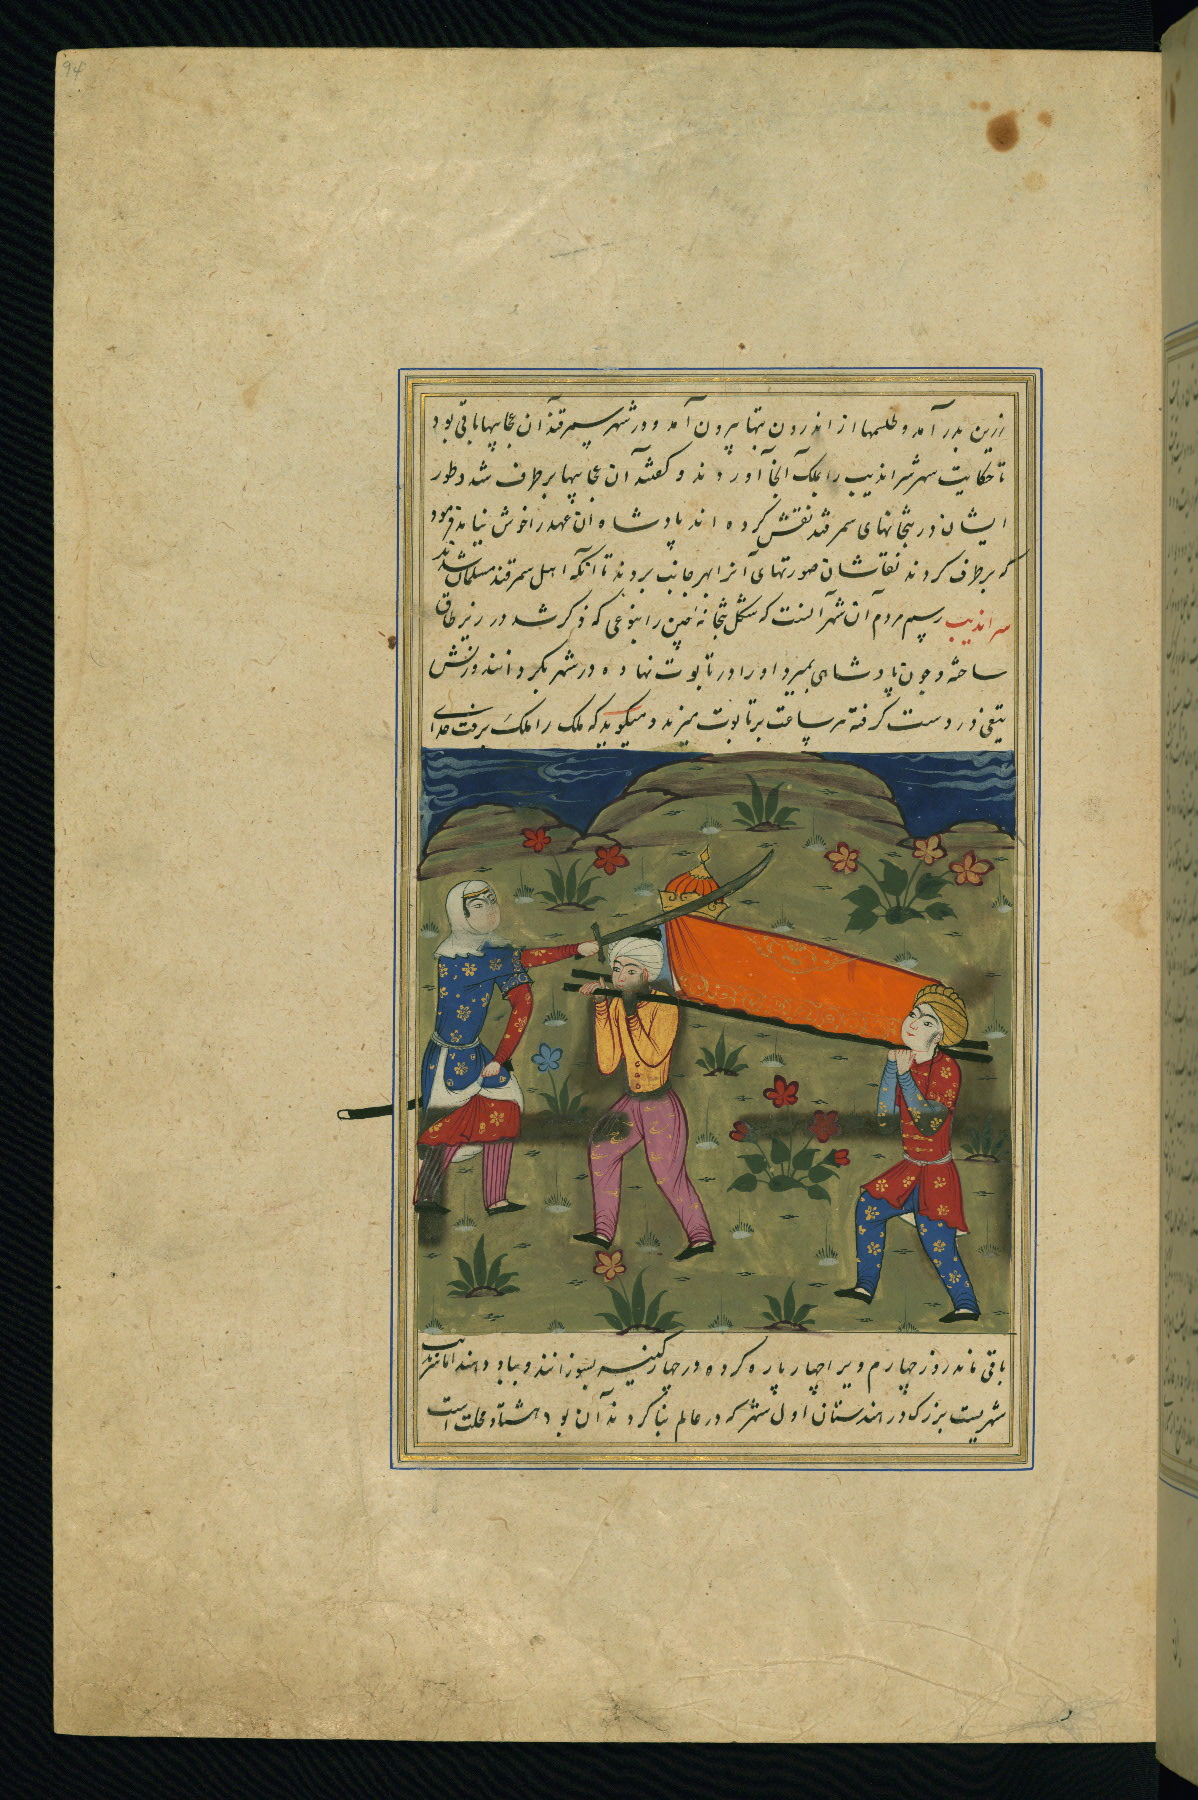 94
زرین بدر آمد و طلسمها از اندرون بتها بیرون آمد و در شهر سمرقند آن عجایبها باقی بود
تا حکایت شهر سراندیب را بملک آنجا آوردند و گفتند آن عجایبها برطرف شد و طور
ایشان در بتخانهای سمرقند نقش کرده اند پادشاه آن عهد را خوش نیامد فرمود
که برطرف کردند نقاشان صورتهای آنرا بهر جانب بردند تا آنکه اهل سمرقند مسلمان شدند
سراندیب رسم مردم آن شهر آنست که شکل بتخانه چین را بنوعی که ذکر شد در زیر طاق
ساخته و چون پادشاهی بمیرد او را در تابوت نهاده در شهر بگردانند و زنش
تیغی در دست گرفته هر ساعت بر تابوت میزند و میگوید که ملک را ملک برفت خدای
باقی ماند روز چهارم ویرا چهار پاره کرده در چهار کنیسه بسوزانند و بباد دهند اما
شهریست بزرگ در هندستان اول شهر که در عالم بنا کردند آن بود هشتاد محلت است